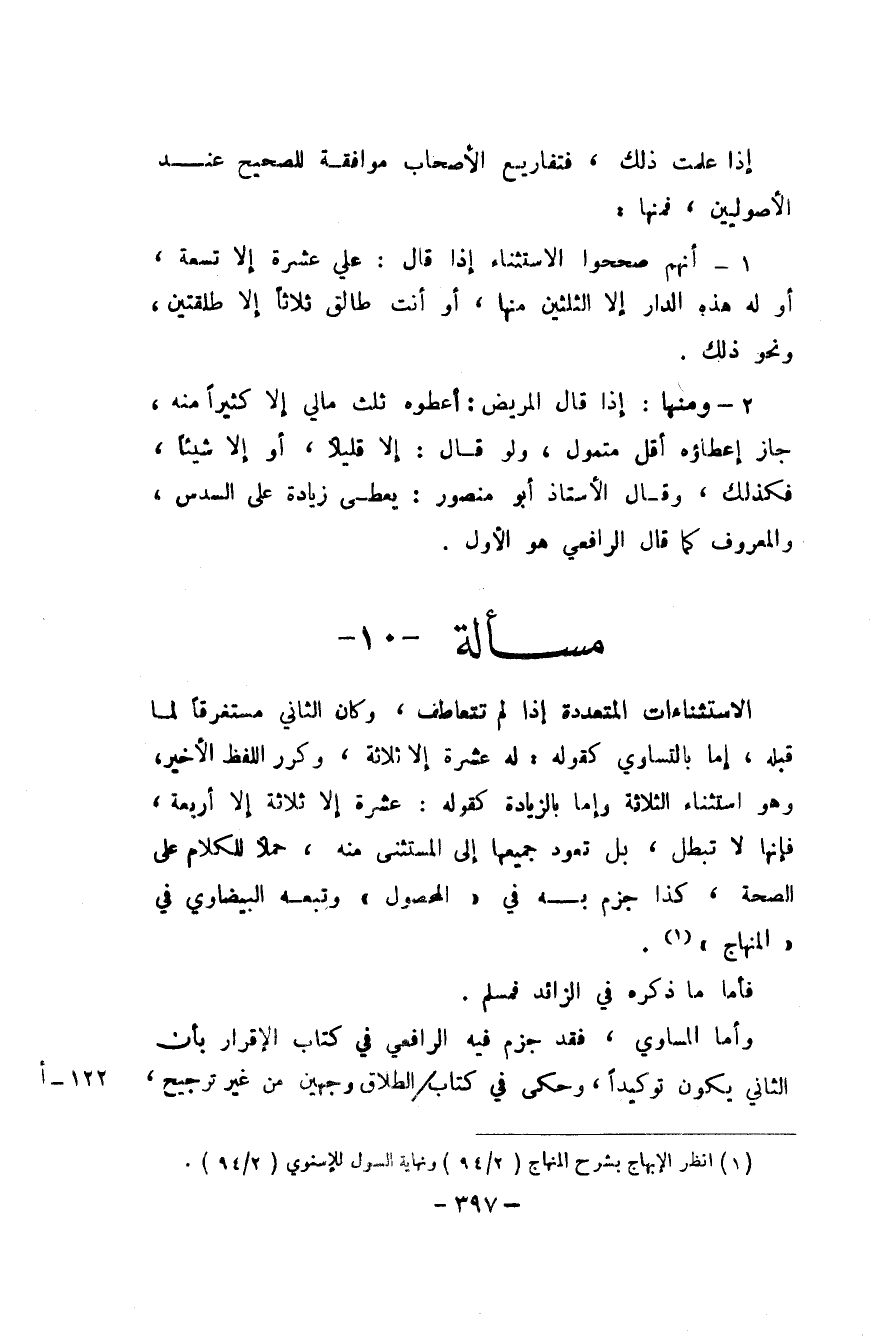 إذا علمت ذلك ، فتفاريع الأصحاب موافقة للصحيح عند
الأصوليين ، فمنها :
١ - أنهم صححوا الاستثناء إذا قال : علي عشرة إلا تسعة ،
أو له هذه الدار إلا الثلثين منها ، أو أنت طالق ثلاثاً إلا طلقتين ،
ونحو ذلك .
٢ - ومنها : إذا قال المريض : أعطوه ثلث مالي إلا كثيراً منه ،
جاز إعطاؤه أقل متمول ، ولو قال : إلا قليلاً ، أو إلا شيئاً ،
فكذلك ، وقال الأستاذ أبو منصور : يعطى زيادة على السدس ،
والمعروف كما قال الرافعي هو الأول .
مسألة -١٠-
الاستثناءات المتعددة إذا لم تتعاطف ، وكان الثاني مستغرقاً لما
قبله ، إما بالتساوي كقوله : له عشرة إلا ثلاثة ، وكرر اللفظ الأخير،
وهو استثناء الثلاثة وإما بالزيادة كقوله : عشرة إلا ثلاثة إلا أربعة ،
فإنها لا تبطل ، بل تعود جميعها إلى المستثنى منه ، حملاً للكلام على
الصحة ، كذا جزم به في « المحصول » وتبعه البيضاوي في
« المنهاج » (١) .
فأما ما ذكره في الزائد فمسلم .
وأما المساوي ، فقد جزم فيه الرافعي في كتاب الإقرار بأن
الثاني يكون توكيداً ، وحكى في كتاب/الطلاق وجهين من غير ترجيح ، ١٢٢ - أ
(١) انظر الإبهاج بشرح المنهاج ( ٩٤/٢ ) ونهاية السول للإسنوي ( ٩٤/٢ ) .
- ٣٩٧ -